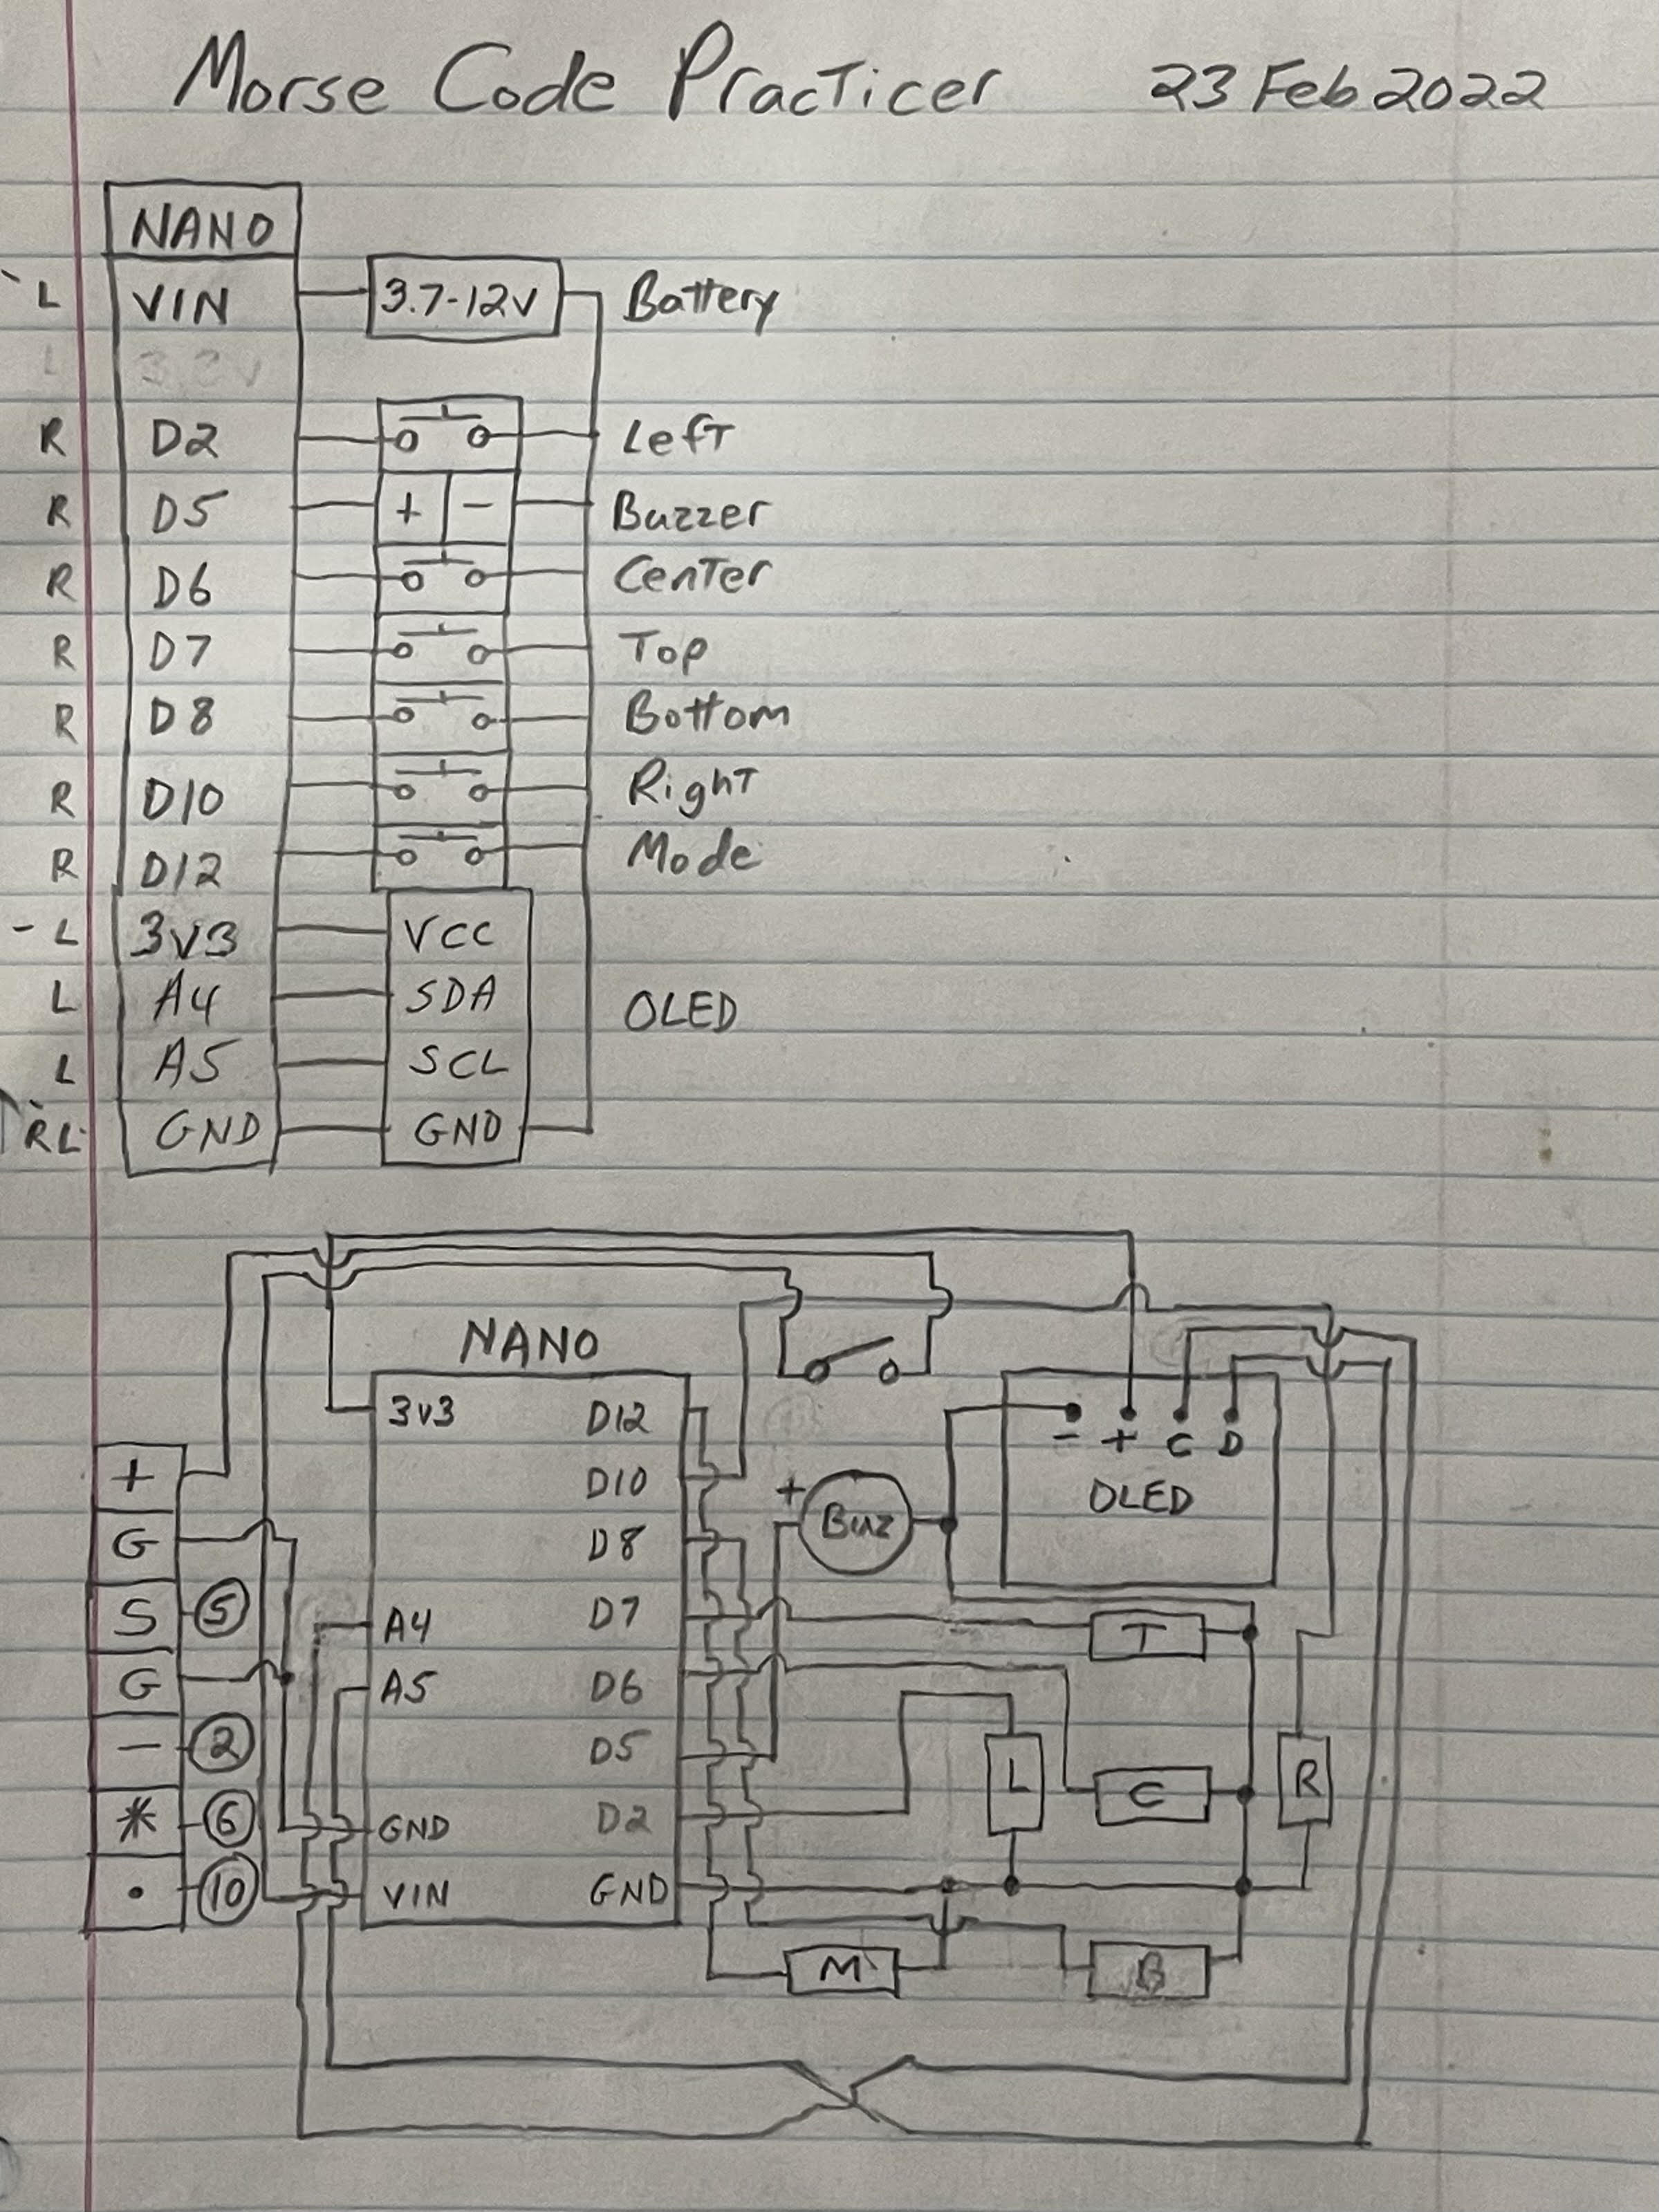 Morse Code Practicer 23 Feb 2022
NANO
L VIN 3.7-12V Battery
L 3.3V
R D2 Left
R D5 + - Buzzer
R D6 Center
R D7 Top
R D8 Bottom
R D10 Right
R D12 Mode
- L 3V3 VCC
L A4 SDA OLED
L A5 SCL
RL GND GND
NANO
3v3 D12 - + C D
+ D10 + OLED
G D8 Buz
S 5 A4 D7 T
G A5 D6
- 2 D5 L C R
* 6 GND D2
. 10 VIN GND
M B